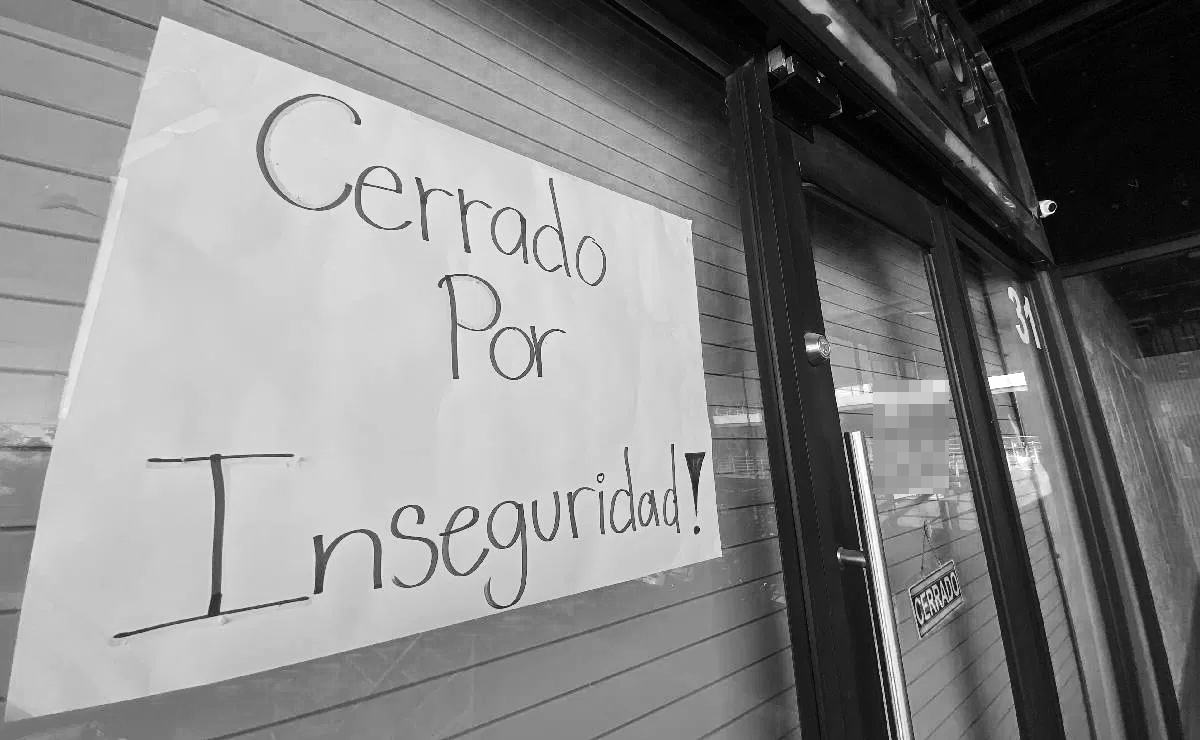 Cerrado
Por
Inseguridad!
31
CERRADO